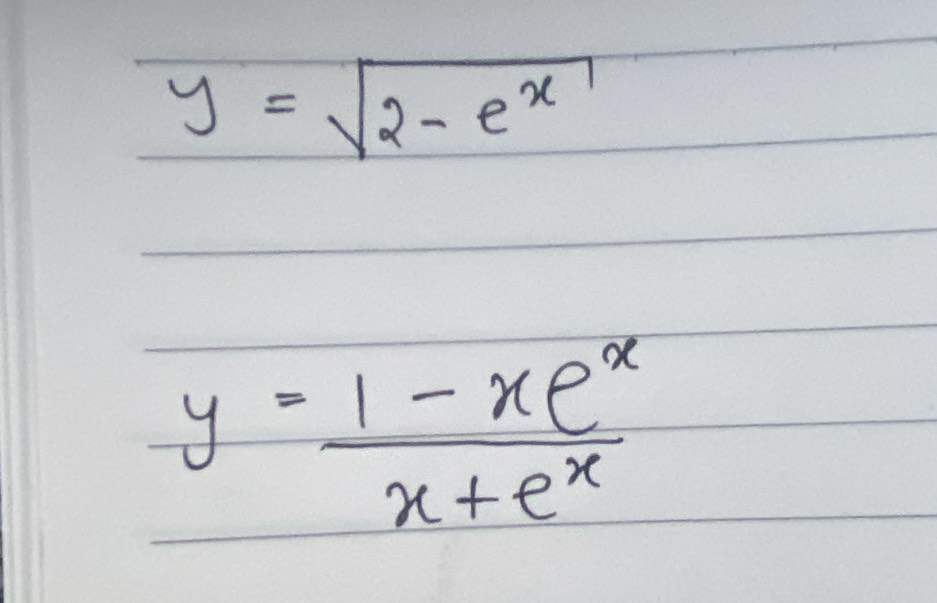 y = √(2 - e^x)
y = (1 - xe^x)/(x + e^x)